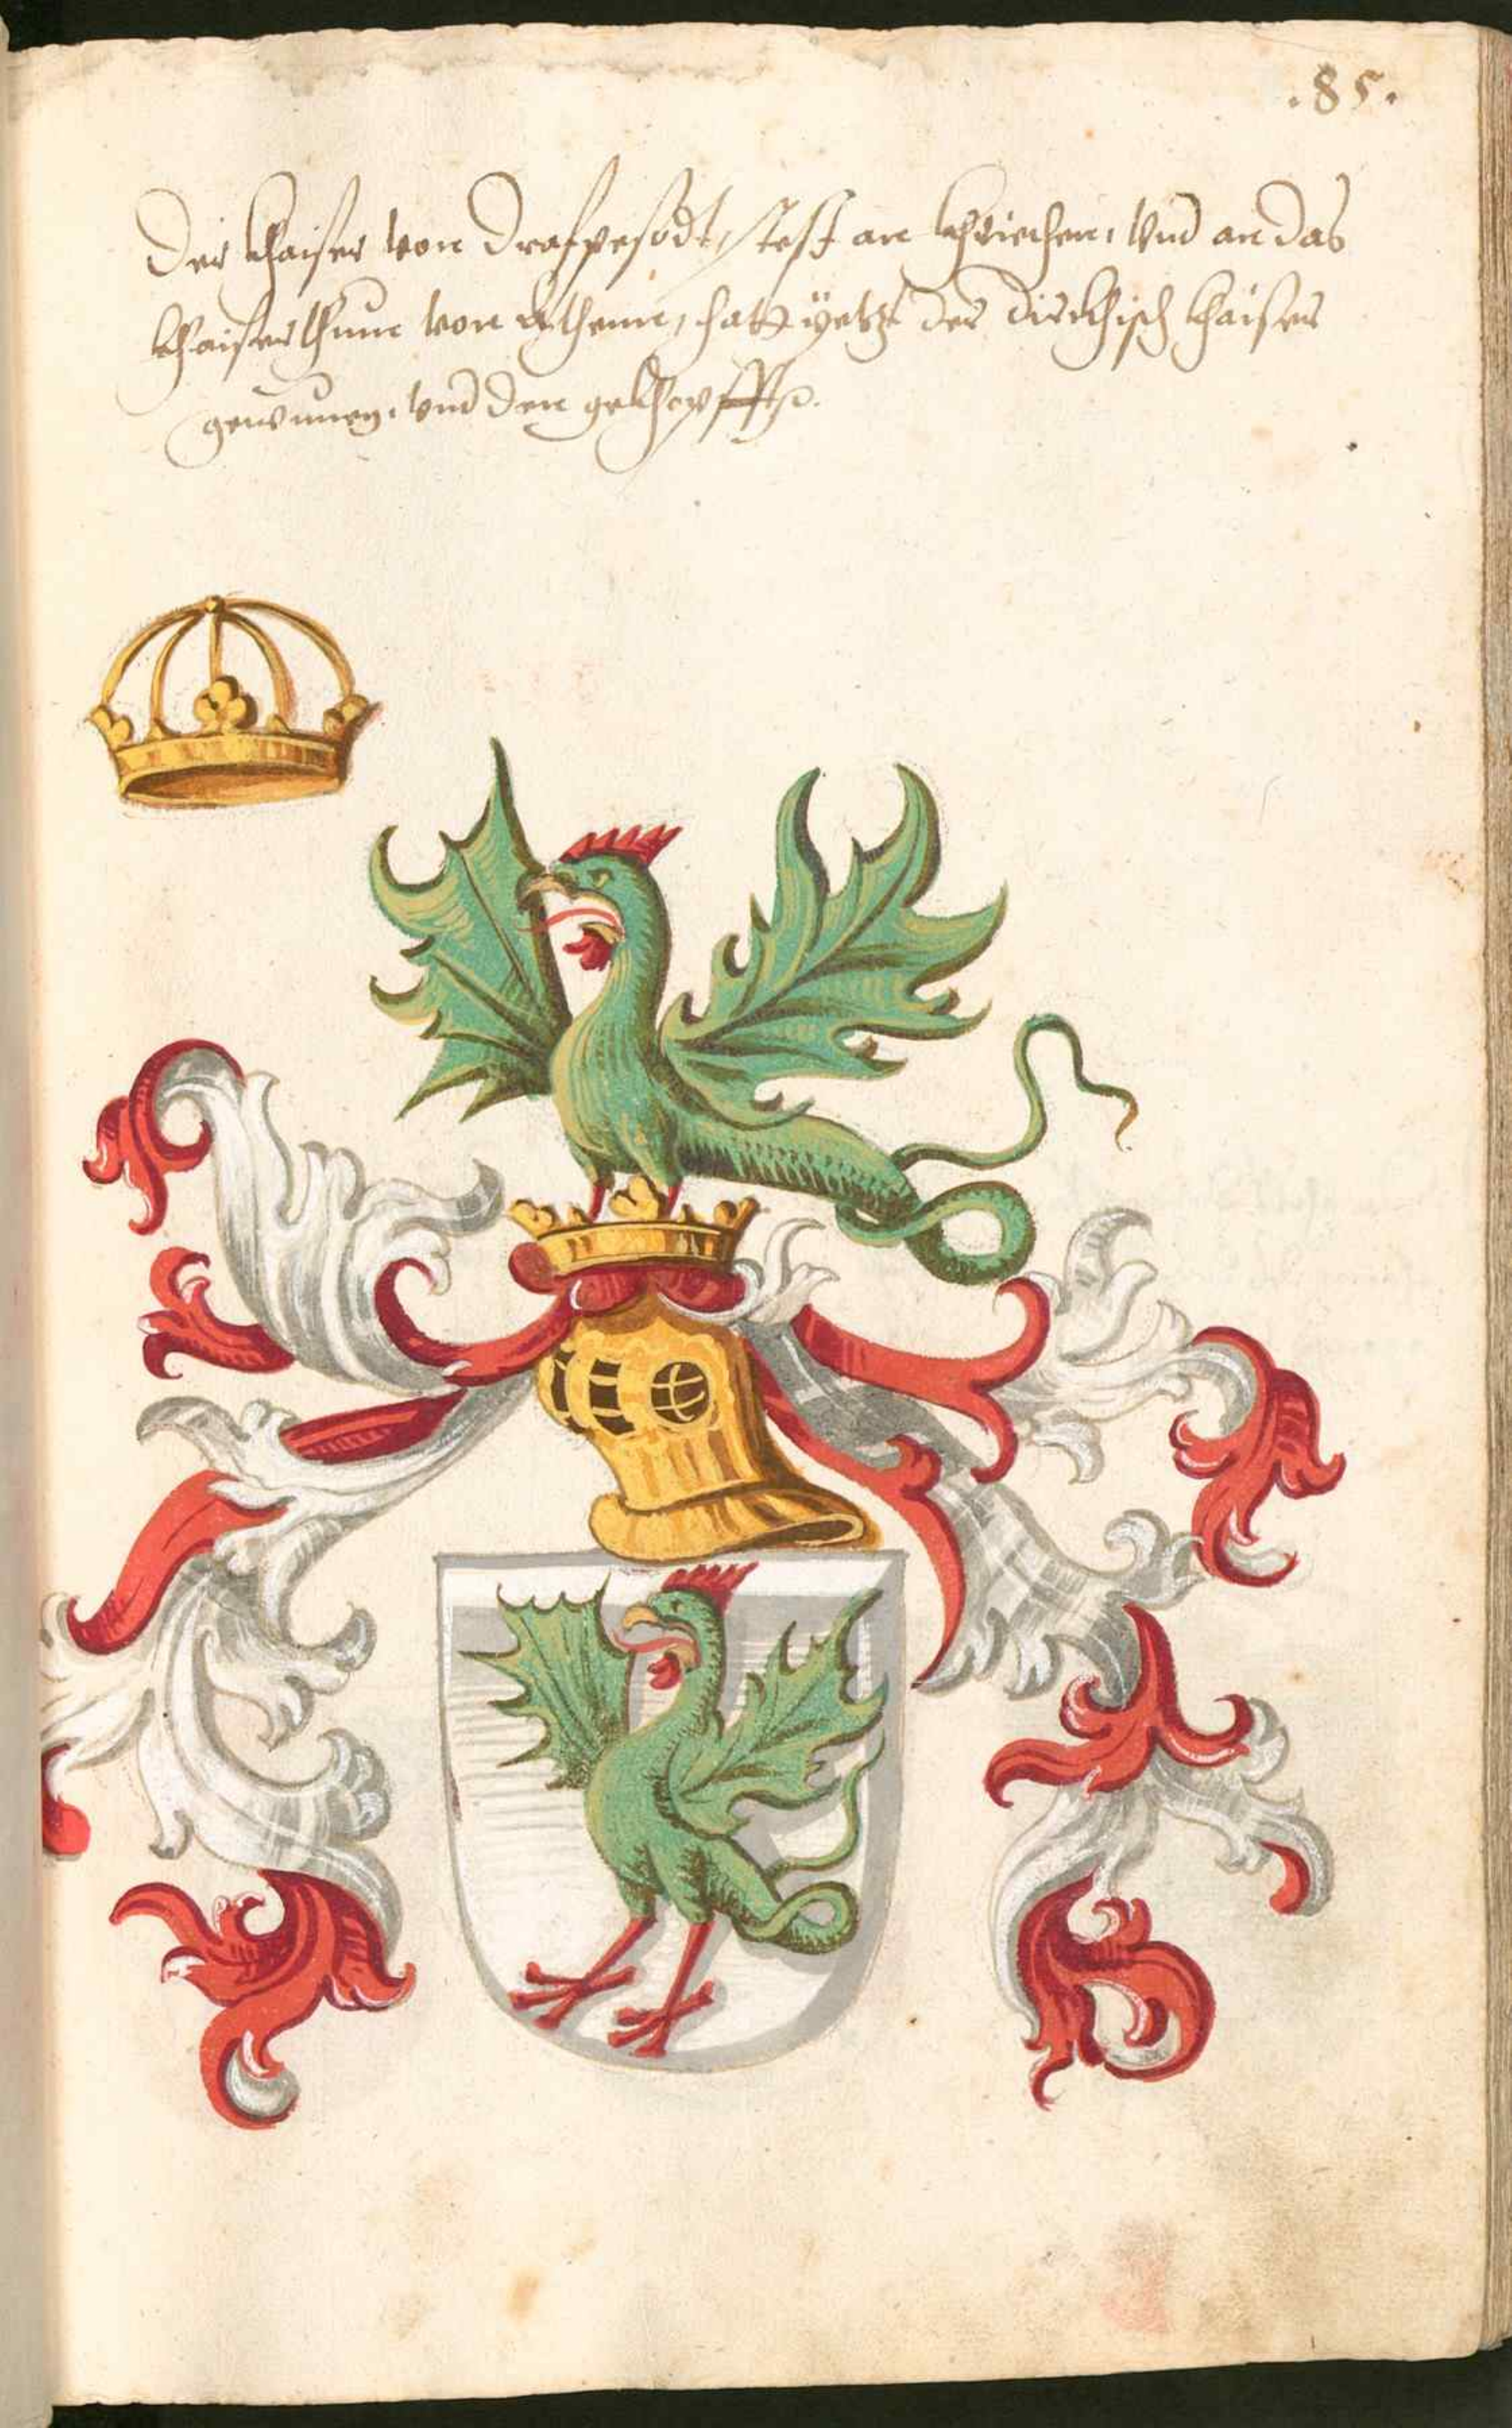 .85.
Der khaiser von Drafpesodt, stest an khriechen, vnd an das
khaiserthum von Athenn, hatt yetzt der dirckhisch khaiser
gewunen, vnd den gekhopfft.